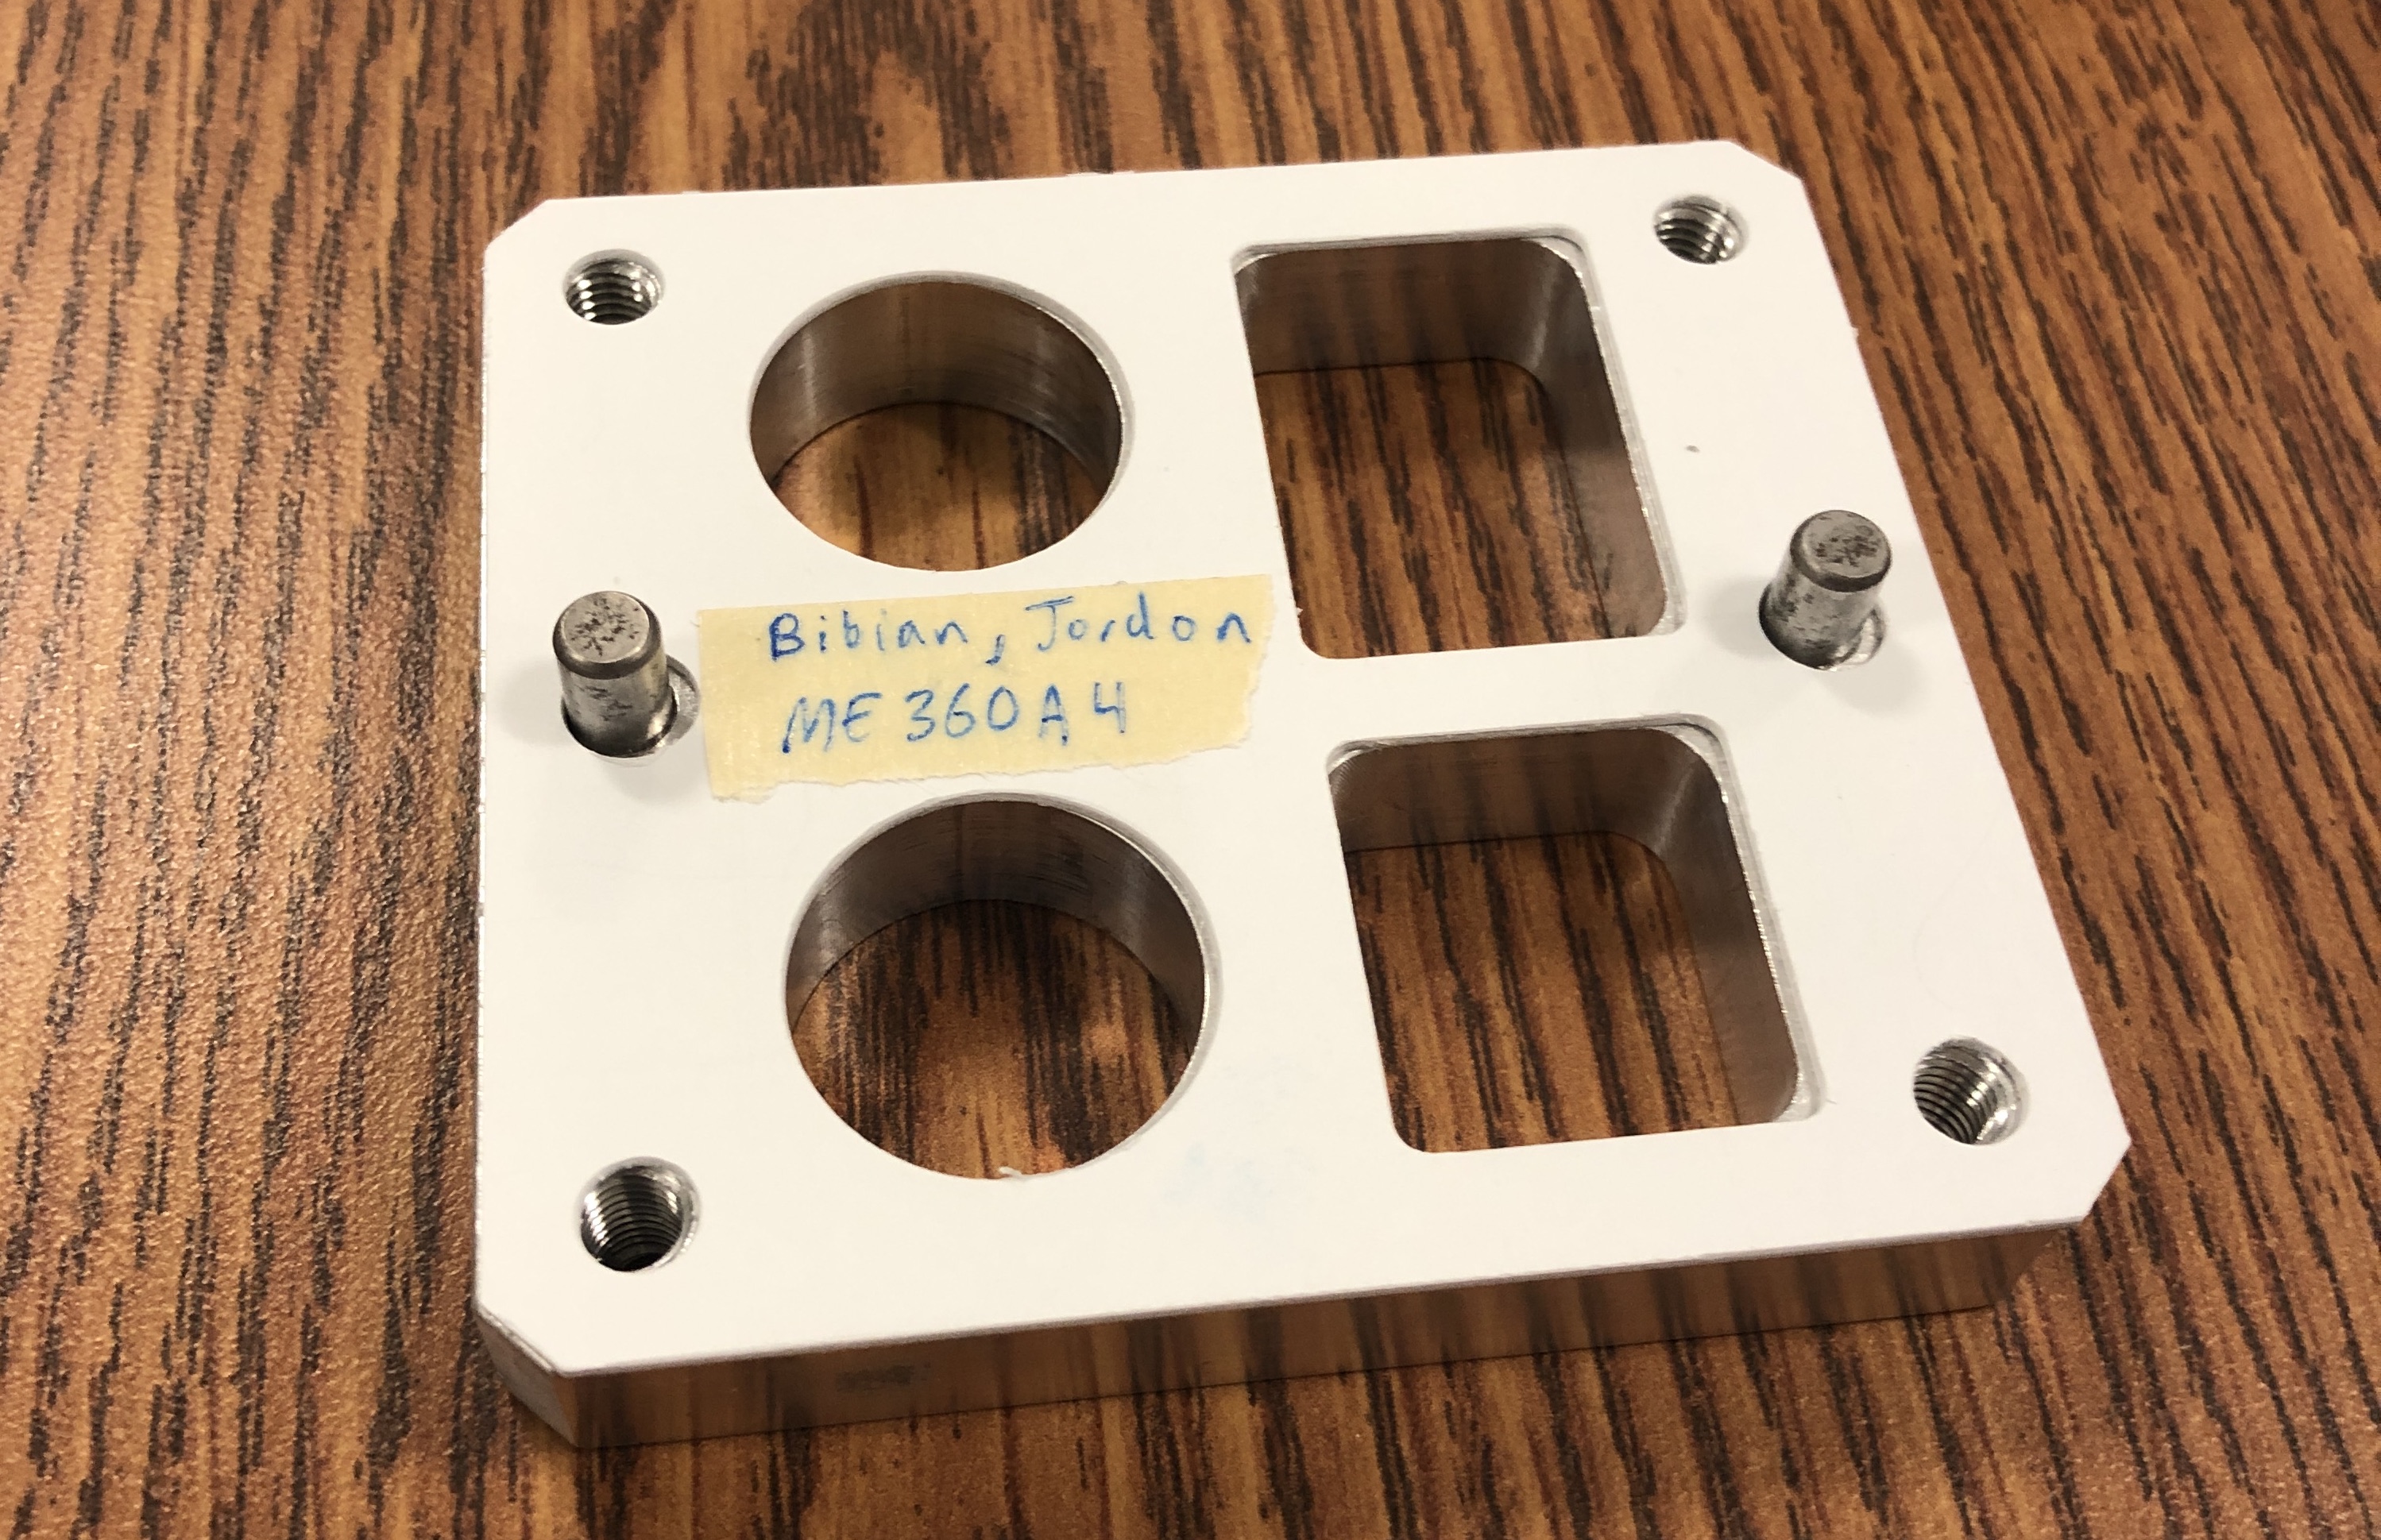 Bibian, Jordon
ME 360 A 4